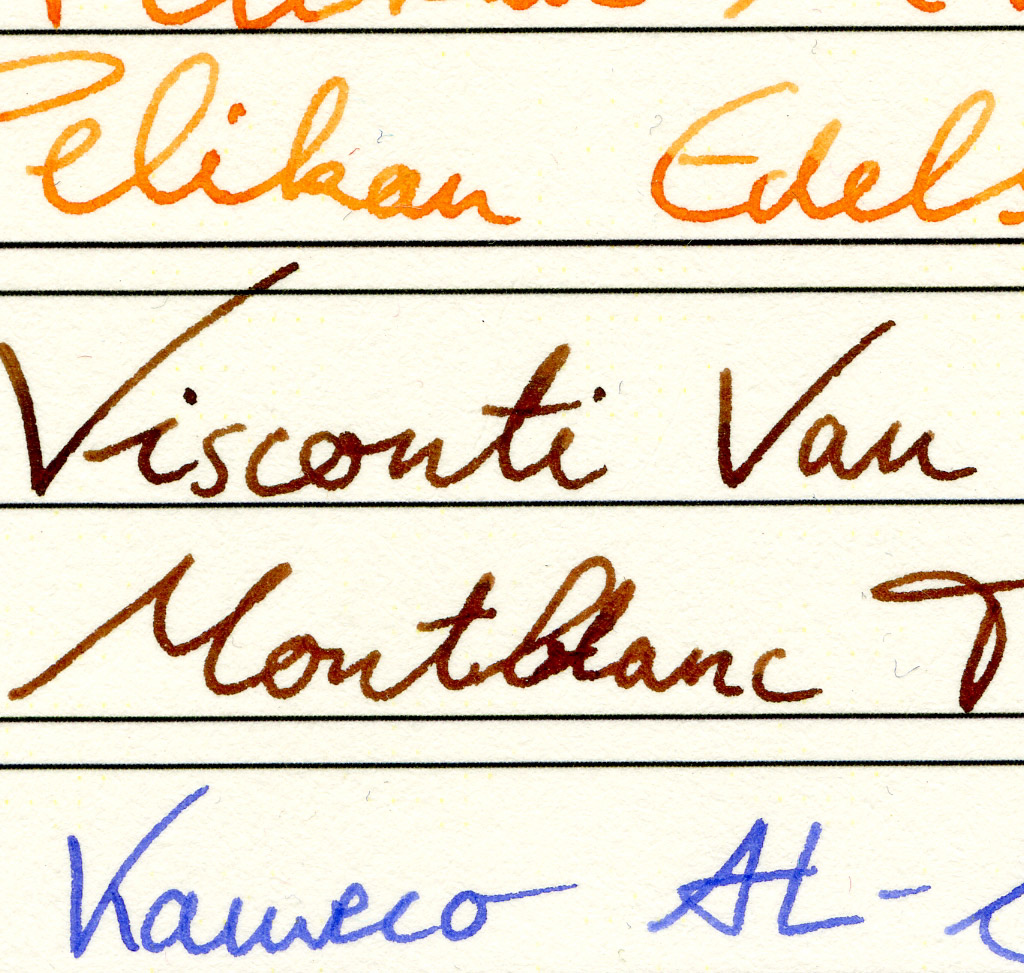 Pelikan Edels
Visconti Van
Montblanc
Kaweco AL-